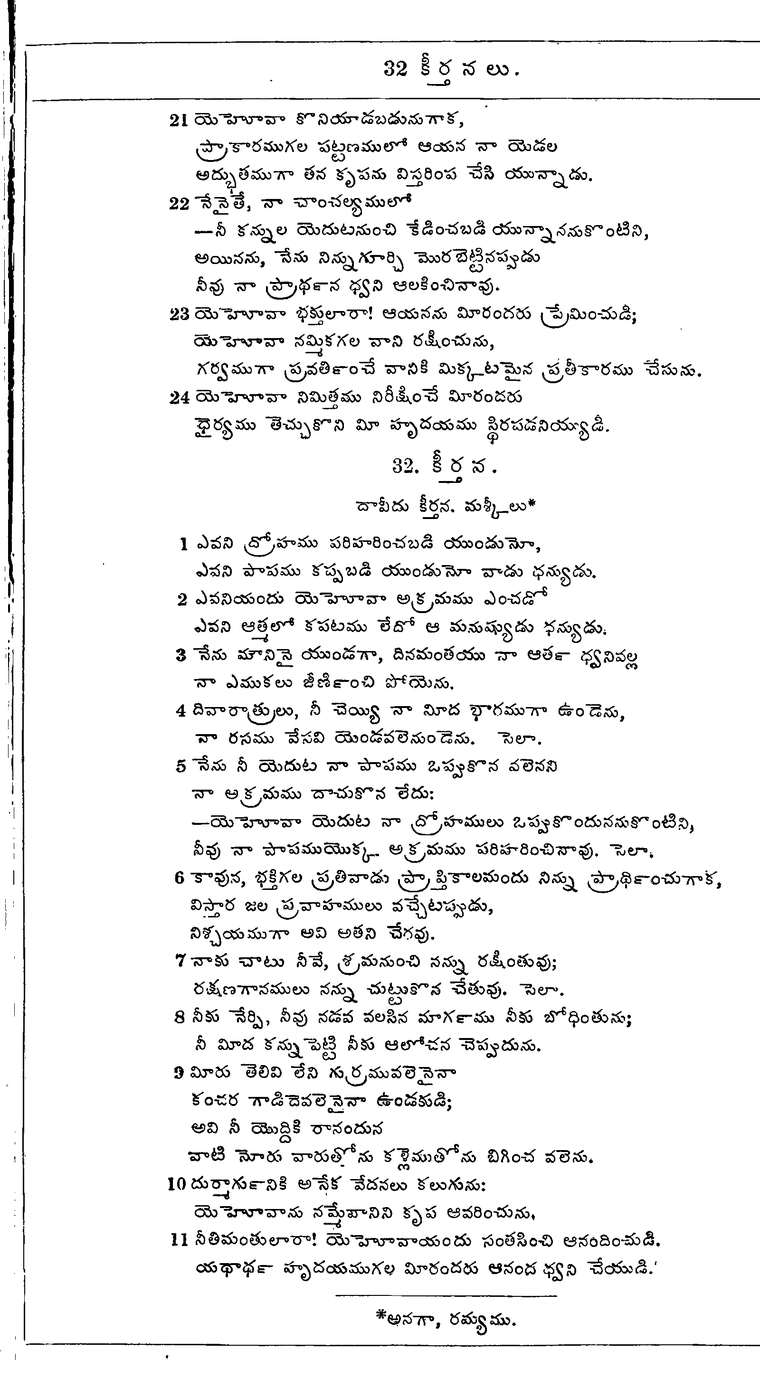 32 కీర్తనలు.
21 యెహోవా కొనియాడబడునుగాక,
ప్రాకారముగల పట్టణములో ఆయన నా యెడల
అద్భుతముగా తన కృపను విస్తరింప చేసి యున్నాడు.
22 నేనైతే, నా చాంచల్యములో
—నీ కన్నుల యెదుటనుంచి కేడించబడి యున్నాననుకొంటిని,
అయినను, నేను నిన్నుగూర్చి మొరబెట్టినప్పుడు
నీవు నా ప్రార్థన ధ్వని ఆలకించినావు.
23 యెహోవా భక్తులారా! ఆయనను మీరందరు ప్రేమించుడి;
యెహోవా నమ్మికగల వాని రక్షించును,
గర్వముగా ప్రవర్తించే వానికి మిక్కటమైన ప్రతీకారము చేసును.
24 యెహోవా నిమిత్తము నిరీక్షించే మీరందరు
ధైర్యము తెచ్చుకొని మీ హృదయము స్థిరపడనియ్యుడీ.
32. కీర్తన.
దావీదు కీర్తన. మశ్కీలు*
1 ఎవని ద్రోహము పరిహరించబడి యుండునో,
ఎవని పాపము కప్పబడి యుండునో వాడు ధన్యుడు.
2 ఎవనియందు యెహోవా అక్రమము ఎంచడో
ఎవని ఆత్మలో కపటము లేదో ఆ మనుష్యుడు ధన్యుడు.
3 నేను మౌనినై యుండగా, దినమంతయు నా ఆర్త ధ్వనివల్ల
నా ఎముకలు జీర్ణించి పోయెను.
4 దివారాత్రులు, నీ చెయ్యి నా మీద భారముగా ఉండెను,
నా రసము వేసవి యెండవలెనుండెను. సెలా.
5 నేను నీ యెదుట నా పాపము ఒప్పుకొన వలెనని
నా అక్రమము దాచుకొన లేదు:
—యెహోవా యెదుట నా ద్రోహములు ఒప్పుకొందుననుకొంటిని,
నీవు నా పాపముయొక్క అక్రమము పరిహరించినావు. సెలా.
6 కావున, భక్తిగల ప్రతివాడు ప్రాప్తికాలమందు నిన్ను ప్రార్థించుగాక,
విస్తార జల ప్రవాహములు వచ్చేటప్పుడు,
నిశ్చయముగా అవి అతని చేరవు.
7 నాకు చాటు నీవే, శ్రమనుంచి నన్ను రక్షింతువు;
రక్షణగానములు నన్ను చుట్టుకొన చేతువు. సెలా.
8 నీకు నేర్పి, నీవు నడవ వలసిన మార్గము నీకు బోధింతును;
నీ మీద కన్నుపెట్టి నీకు ఆలోచన చెప్పుదును.
9 మీరు తెలివి లేని గుర్రమువలెనైనా
కంచర గాడిదెవలెనైనా ఉండకుడి;
అవి నీ యొద్దికి రానందున
వాటి నోరు వారుతోను కళ్లెముతోను బిగించ వలెను.
10 దుర్మార్గునికి అనేక వేదనలు కలుగును:
యెహోవాను నమ్మేవానిని కృప ఆవరించును,
11 నీతిమంతులారా! యెహోవాయందు సంతసించి ఆనందించుడి.
యథార్థ హృదయముగల మీరందరు ఆనంద ధ్వని చేయుడి.
*అనగా, రమ్యము.